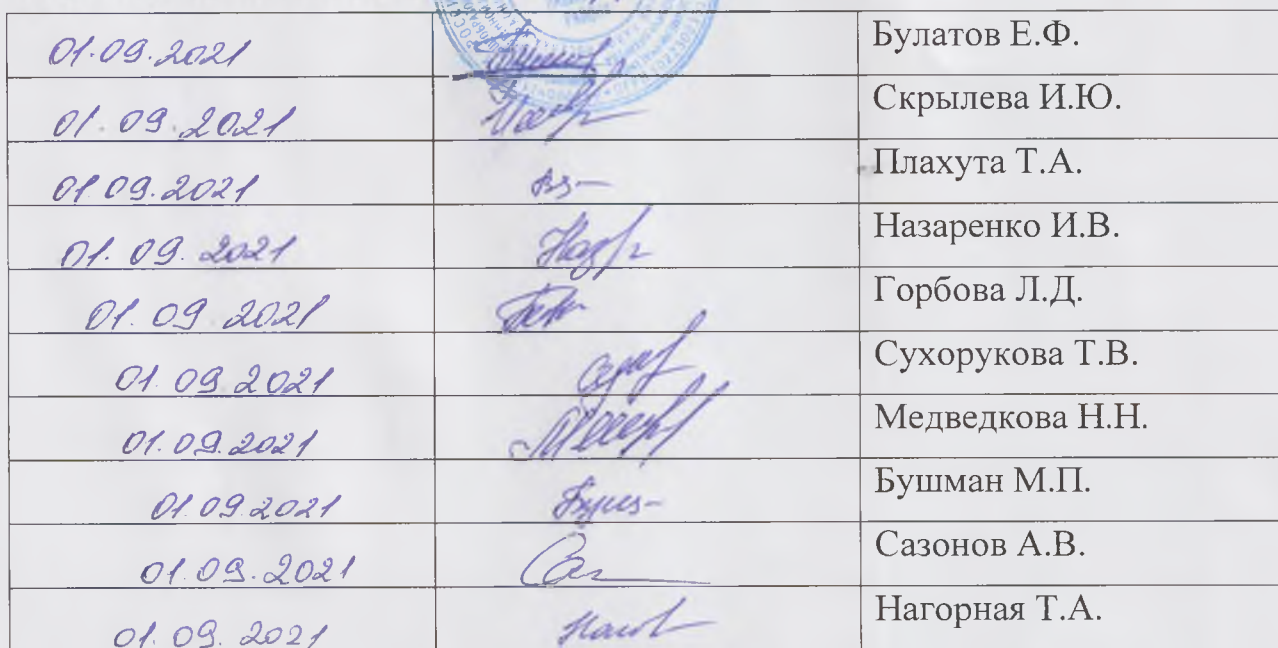 01.09.2021 Булатов Е.Ф.
01.09.2021 Скрылева И.Ю.
01.09.2021 Плахута Т.А.
01.09.2021 Назаренко И.В.
01.09.2021 Горбова Л.Д.
01.09.2021 Сухорукова Т.В.
01.09.2021 Медведкова Н.Н.
01.09.2021 Бушман М.П.
01.09.2021 Сазонов А.В.
01.09.2021 Нагорная Т.А.